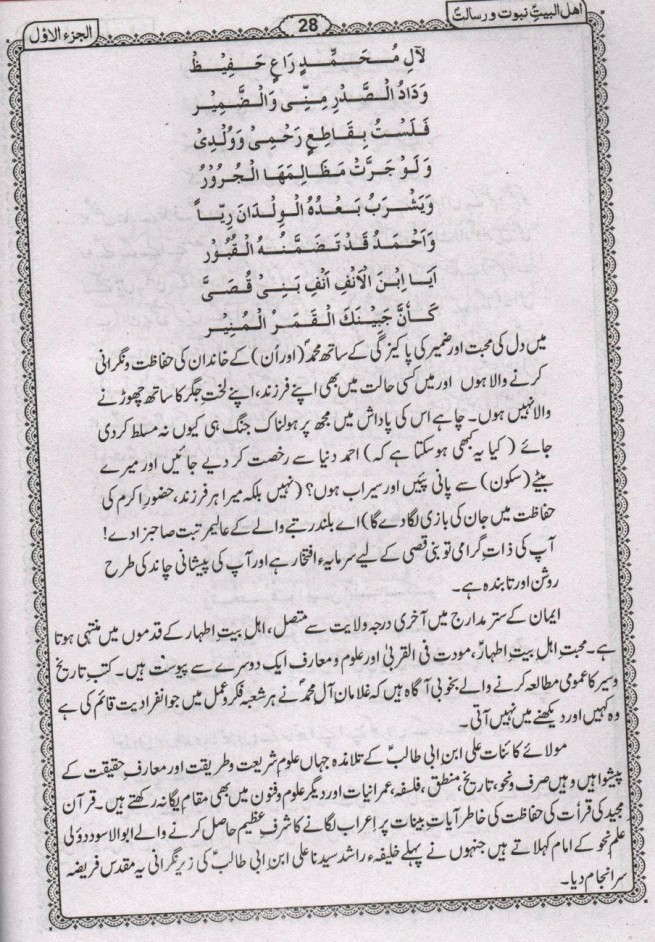 اهل البیتِ نبوت و رسالت
28
الجزء الاوّل
لآلِ مُحَمَّدٍ رَاعٍ حَفِيظٌ
وَدَادُ الصَّدْرِ مِنِّى وَالضَّمِيْرِ
فَلَسْتُ بِقَاطِعٍ رَحْمِىْ وَوُلْدِىْ
وَلَوْ جَرَّتْ مَظَالِمَهَا الْجُرُوْرُ
وَيَشْرَبُ بَعْدَهُ الْوِلْدَانَ رِيًّا
وَاَحْمَدُ قَدْ تَضَمَّنُهُ الْقُبُوْرُ
اَيَا اِبْنَ الْاَنْفِ اَنْفِ بَنِىْ قُصَىٍّ
كَأَنَّ جَبِيْنَكَ الْقَمَرُ الْمُنِيْرِ
میں دل کی محبت اور ضمیر کی پاکیزگی کے ساتھ محمدؐ (اور اُن) کے خاندان کی حفاظت ونگرانی
کرنے والا ہوں اور میں کسی حالت میں بھی اپنے فرزند، اپنے لختِ جگر کا ساتھ چھوڑنے
والا نہیں ہوں۔ چاہے اس کی پاداش میں مجھ پر ہولناک جنگ ہی کیوں نہ مسلط کردی
جائے (کیا یہ کبھی ہوسکتا ہے کہ) احمد دنیا سے رخصت کر دیے جائیں اور میرے
بیٹے (سکون) سے پانی پئیں اور سیراب ہوں؟ (نہیں بلکہ میرا ہر فرزند، حضورِ اکرم کی
حفاظت میں جان کی بازی لگا دے گا) اے بلند رتبے والے کے عالیمرتبت صاحبزادے!
آپ کی ذاتِ گرامی تو بنی قصی کے لیے سرمایہء افتخار ہے اور آپ کی پیشانی چاند کی طرح
روشن اور تابندہ ہے۔
ایمان کے ستر مدارج میں آخری درجہ ولایت سے متصل، اہل بیتِ اطہار کے قدموں میں منتہی ہوتا
ہے۔ محبتِ اہلِ بیتِ اطہارؑ، مودت فی القربیٰ اور علوم و معارف ایک دوسرے سے پیوست ہیں۔ کتبِ تاریخ
وسیر کا عمومی مطالعہ کرنے والے بخوبی آگاہ ہیں کہ غلامانِ آلِ محمدؐ نے ہر شعبہء فکر و عمل میں جو انفرادیت قائم کی ہے
وہ کہیں اور دیکھنے میں نہیں آتی۔
مولائے کائنات علی ابن ابی طالبؑ کے تلامذہ جہاں علومِ شریعت وطریقت اور معارفِ حقیقت کے
پیشوا ہیں وہیں صرف ونحو، تاریخ، منطق، فلسفہ، عمرانیات اور دیگر علوم وفنون میں بھی مقامِ یگانہ رکھتے ہیں۔ قرآن
مجید کی قرأت کی حفاظت کی خاطر آیاتِ بینات پر اِعراب لگانے کا شرفِ عظیم حاصل کرنے والے ابوالاسود دؤلی
علمِ نحو کے امام کہلاتے ہیں جنہوں نے پہلے خلیفہء راشد سیدنا علی ابنِ ابی طالبؑ کی زیرِنگرانی یہ مقدس فریضہ
سرانجام دیا۔